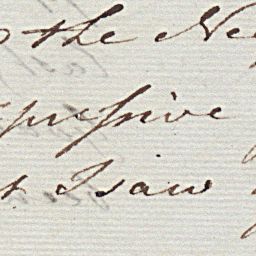 the Ne
pressive
I saw